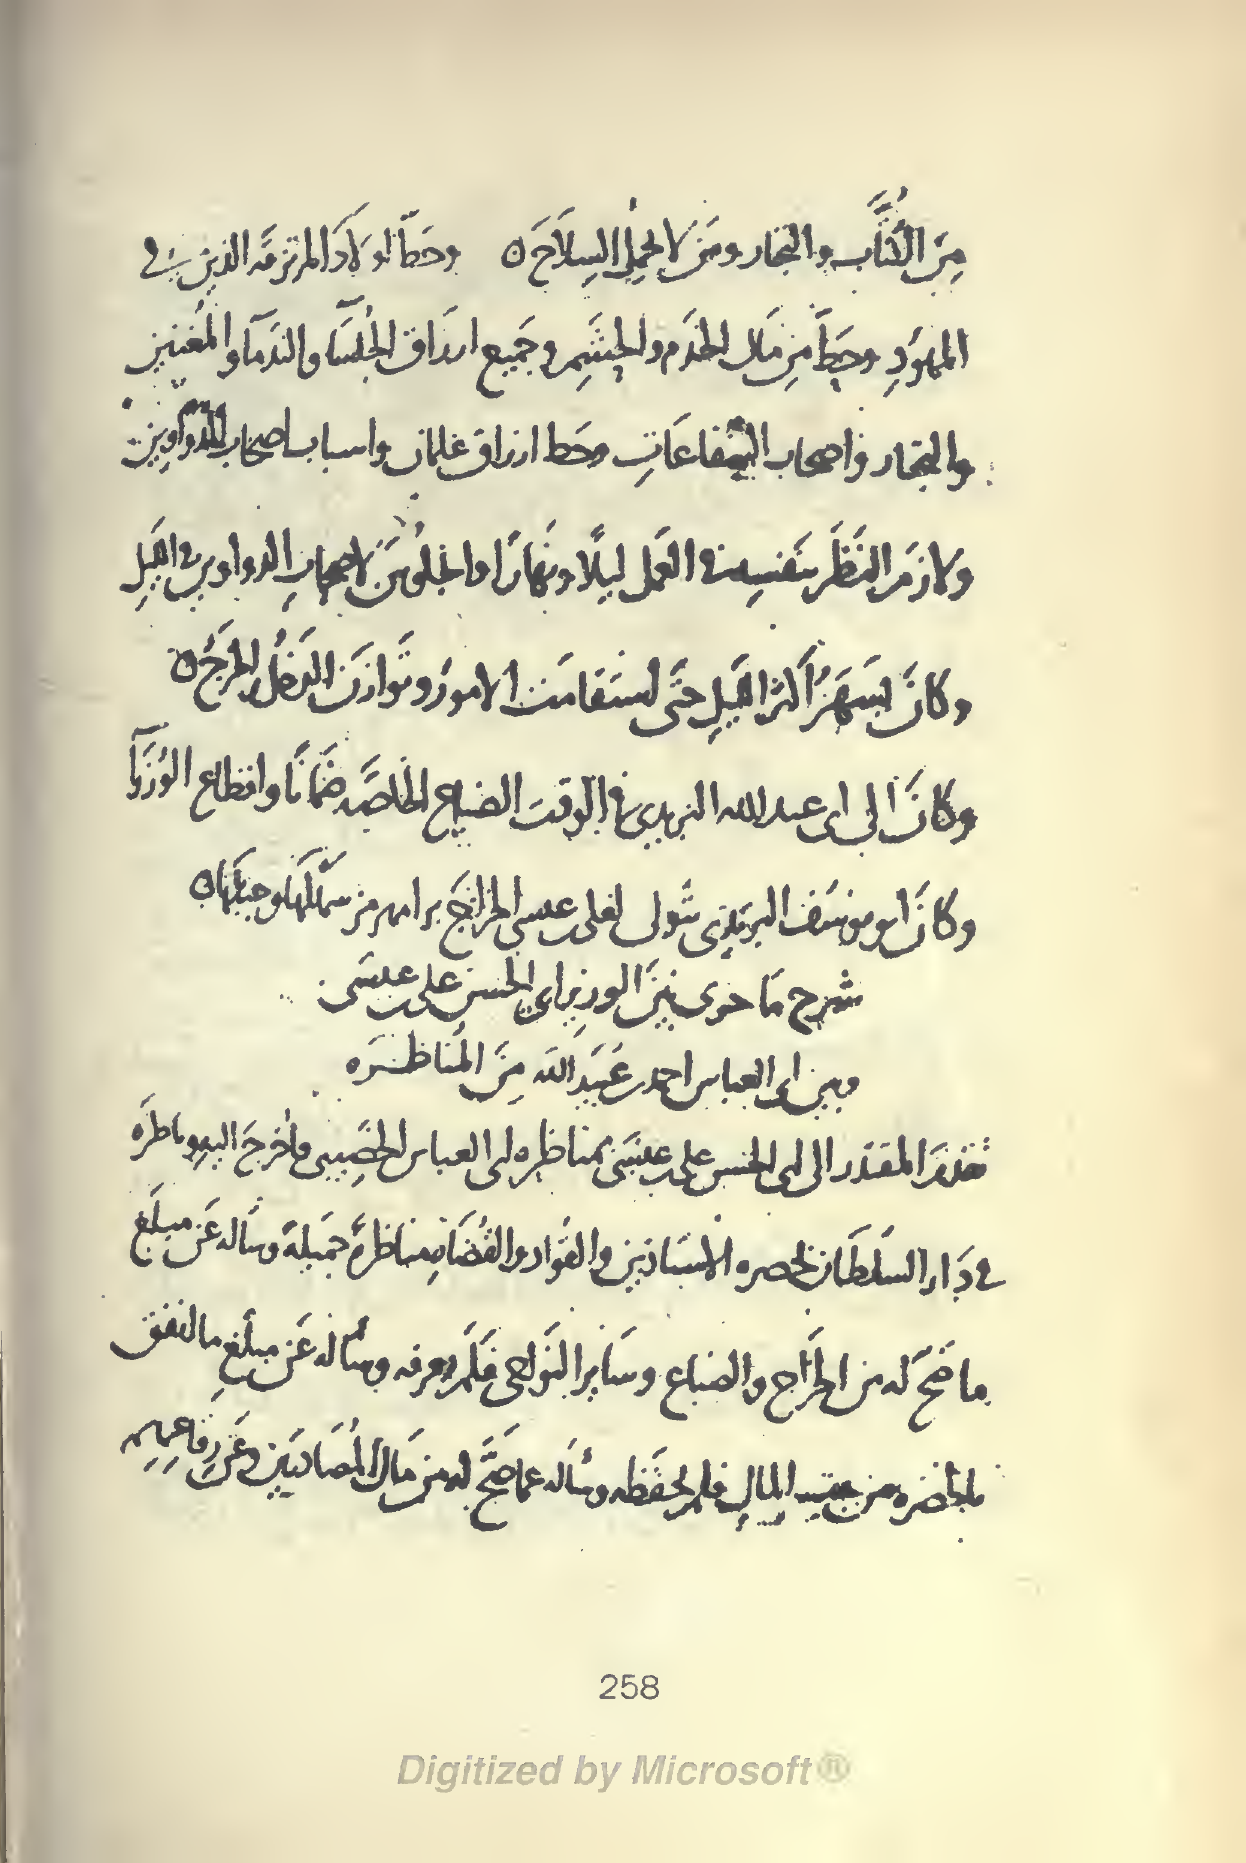 مِنَ الكُتَّاب والتجار ومَن لا يحمل السِلاحَ ه وحَطّ اولادَ المرتزقه الذين في
المهودِ وحَطّ من مَال الخدَم والحشَمِ وجَميع ارزاق الجُلسَآ والندَمآ والمُغنين
والتجار واصحاب الشفاعَاتِ وحَط ارزاق غلمان واسباب اصحاب الدوَاوين
ولازمَ النَظَر بنفسِه في العَمل ليلًا ونهارًا واجلوسَ لاصحابِ الدواوين في الليلِ
وكانَ يسهَرُ اكثرَ الليلِ حتَّى استقامَت الامورُ وتَوازنَ الدَخلُ والخرجُ ه
وكانَ الى ابى عبد الله البريدى في الوقت الضياع الخاصّه ضمانًا واقطاع الوُزرَآ
وكانَ ابو يوسف البريدى يتولى لعلى بن عيسى الخراجَ برامهرمز سَهلَها وجبلَها ه
شرح مَا جرى بينَ الوزير ابى الحسن على بن عيسَى
وبين ابى العباس احمد بن عُبَيد الله مِنَ المُناظَرَه
تقدمَ المقتدر الى ابى الحسن على بن عيسَى بمناظره ابى العباس الخصيبى فاخرجَ اليه وناظرَه
في دَار السلطَان بحضره الاستاذين والقوَّاد والقُضَاه مناظرةً جَميلةً وسَاله عَن مبلَغ
ما صَحّ له من الخرَاج والضياع وسَاير النَواحى فَلَم يعرفه وسَأله عَن مبلَغ ما انفق
فلم يحفَظه وسَأله عما صَحَّ له من مَال المُصَادَرين وعَن رِقاعِهِم